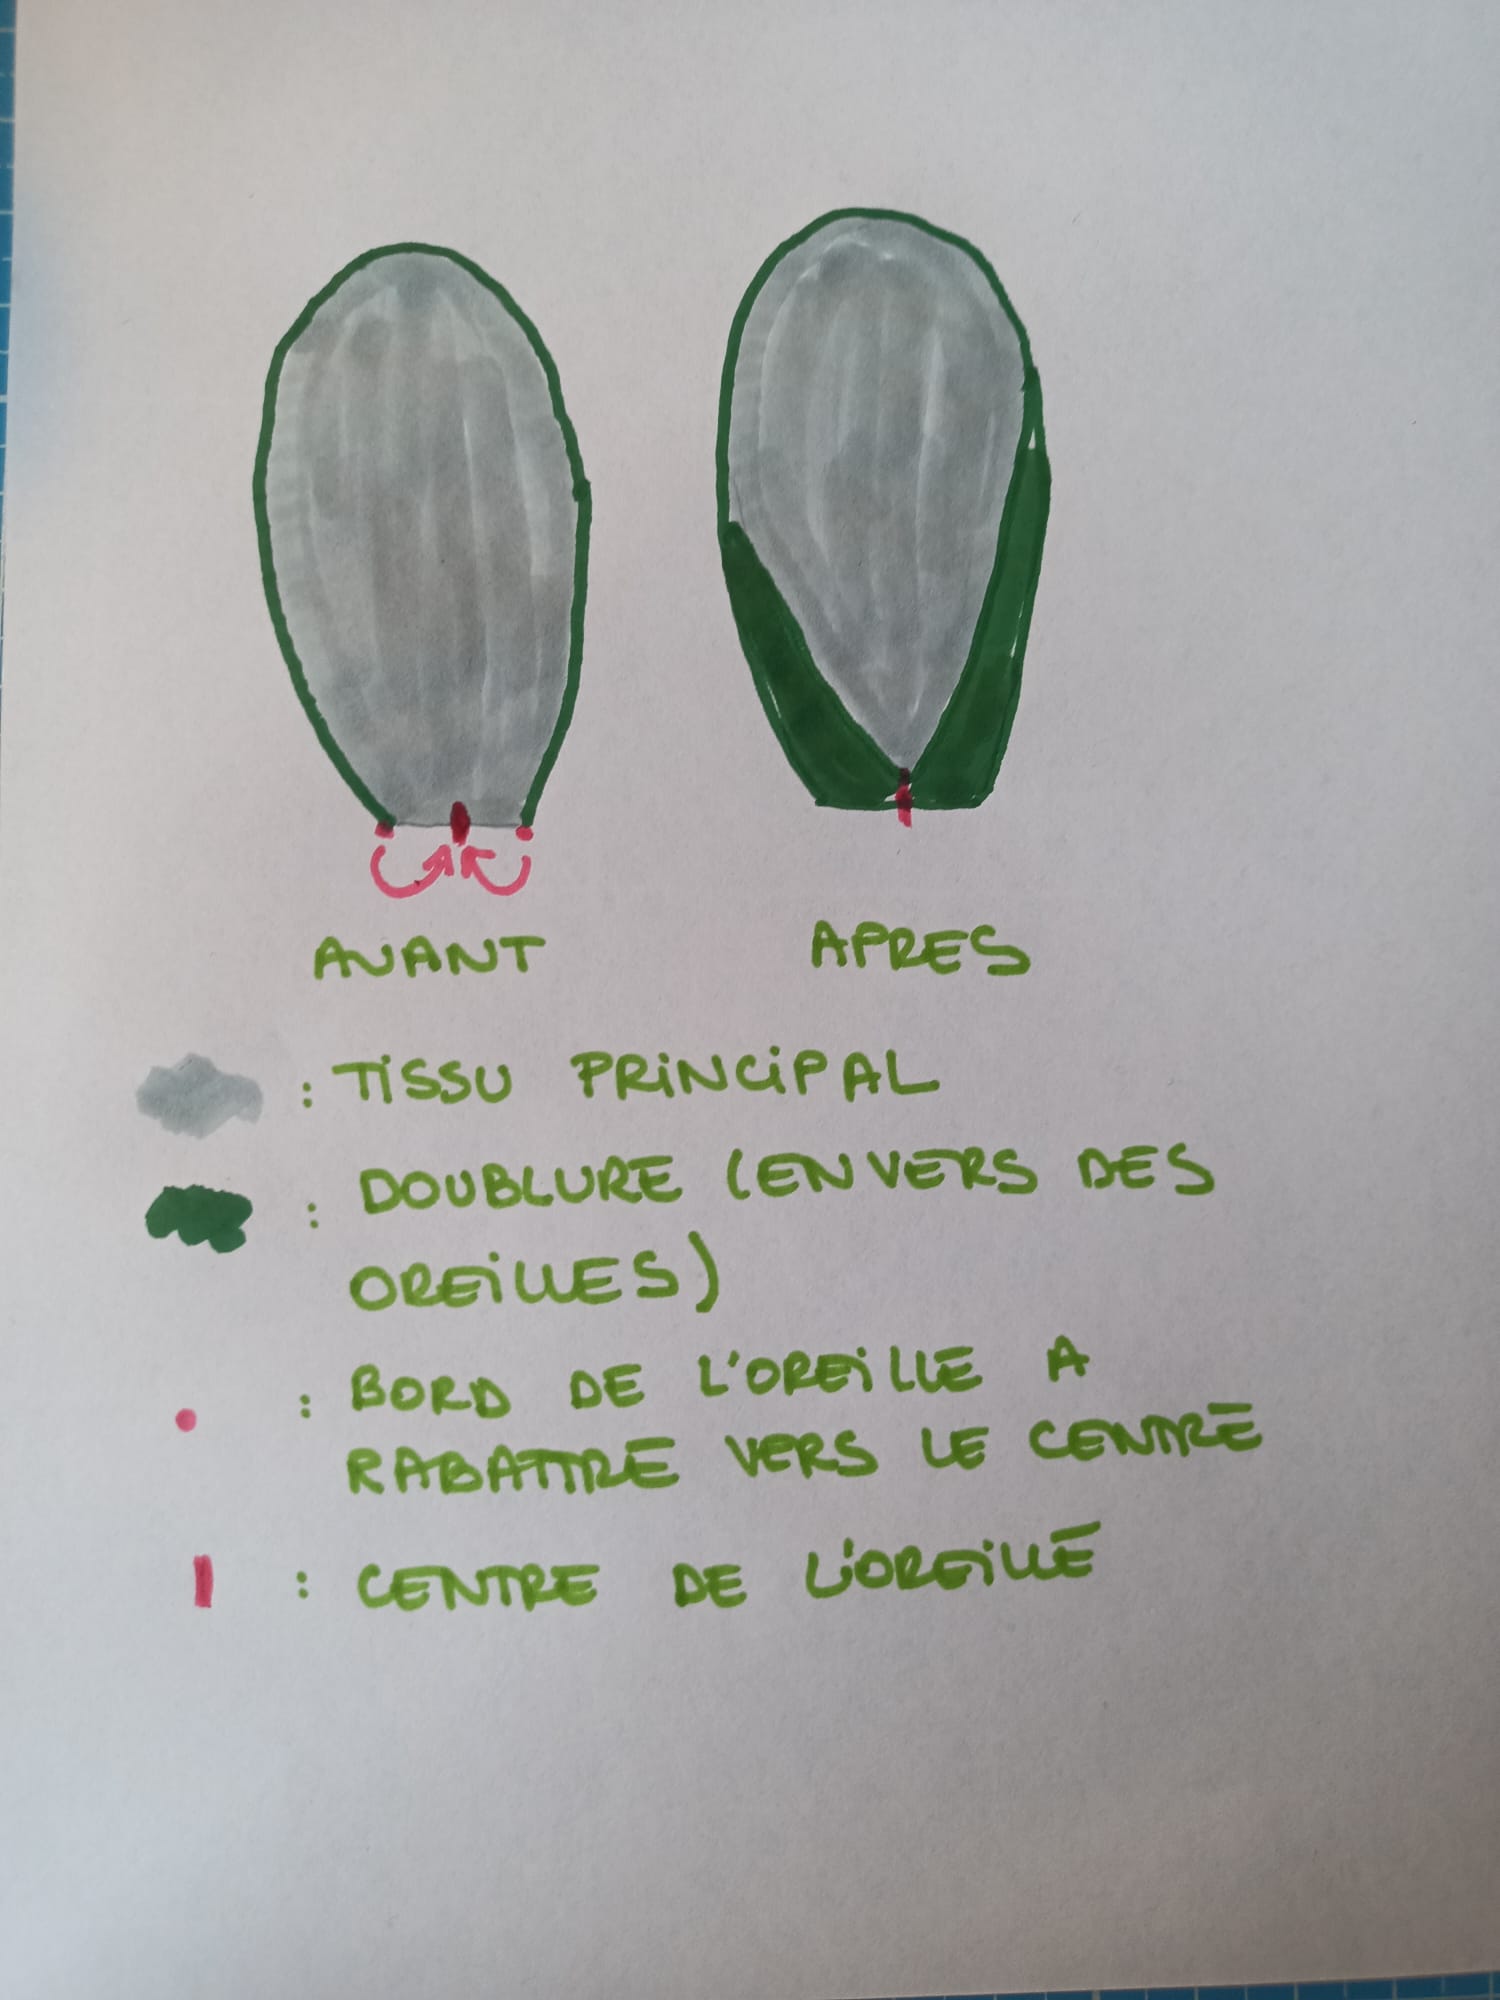 AVANT APRES
: TISSU PRINCIPAL
: DOUBLURE (ENVERS DES
OREILLES)
: BORD DE L'OREILLE A
RABATTRE VERS LE CENTRE
: CENTRE DE L'OREILLE